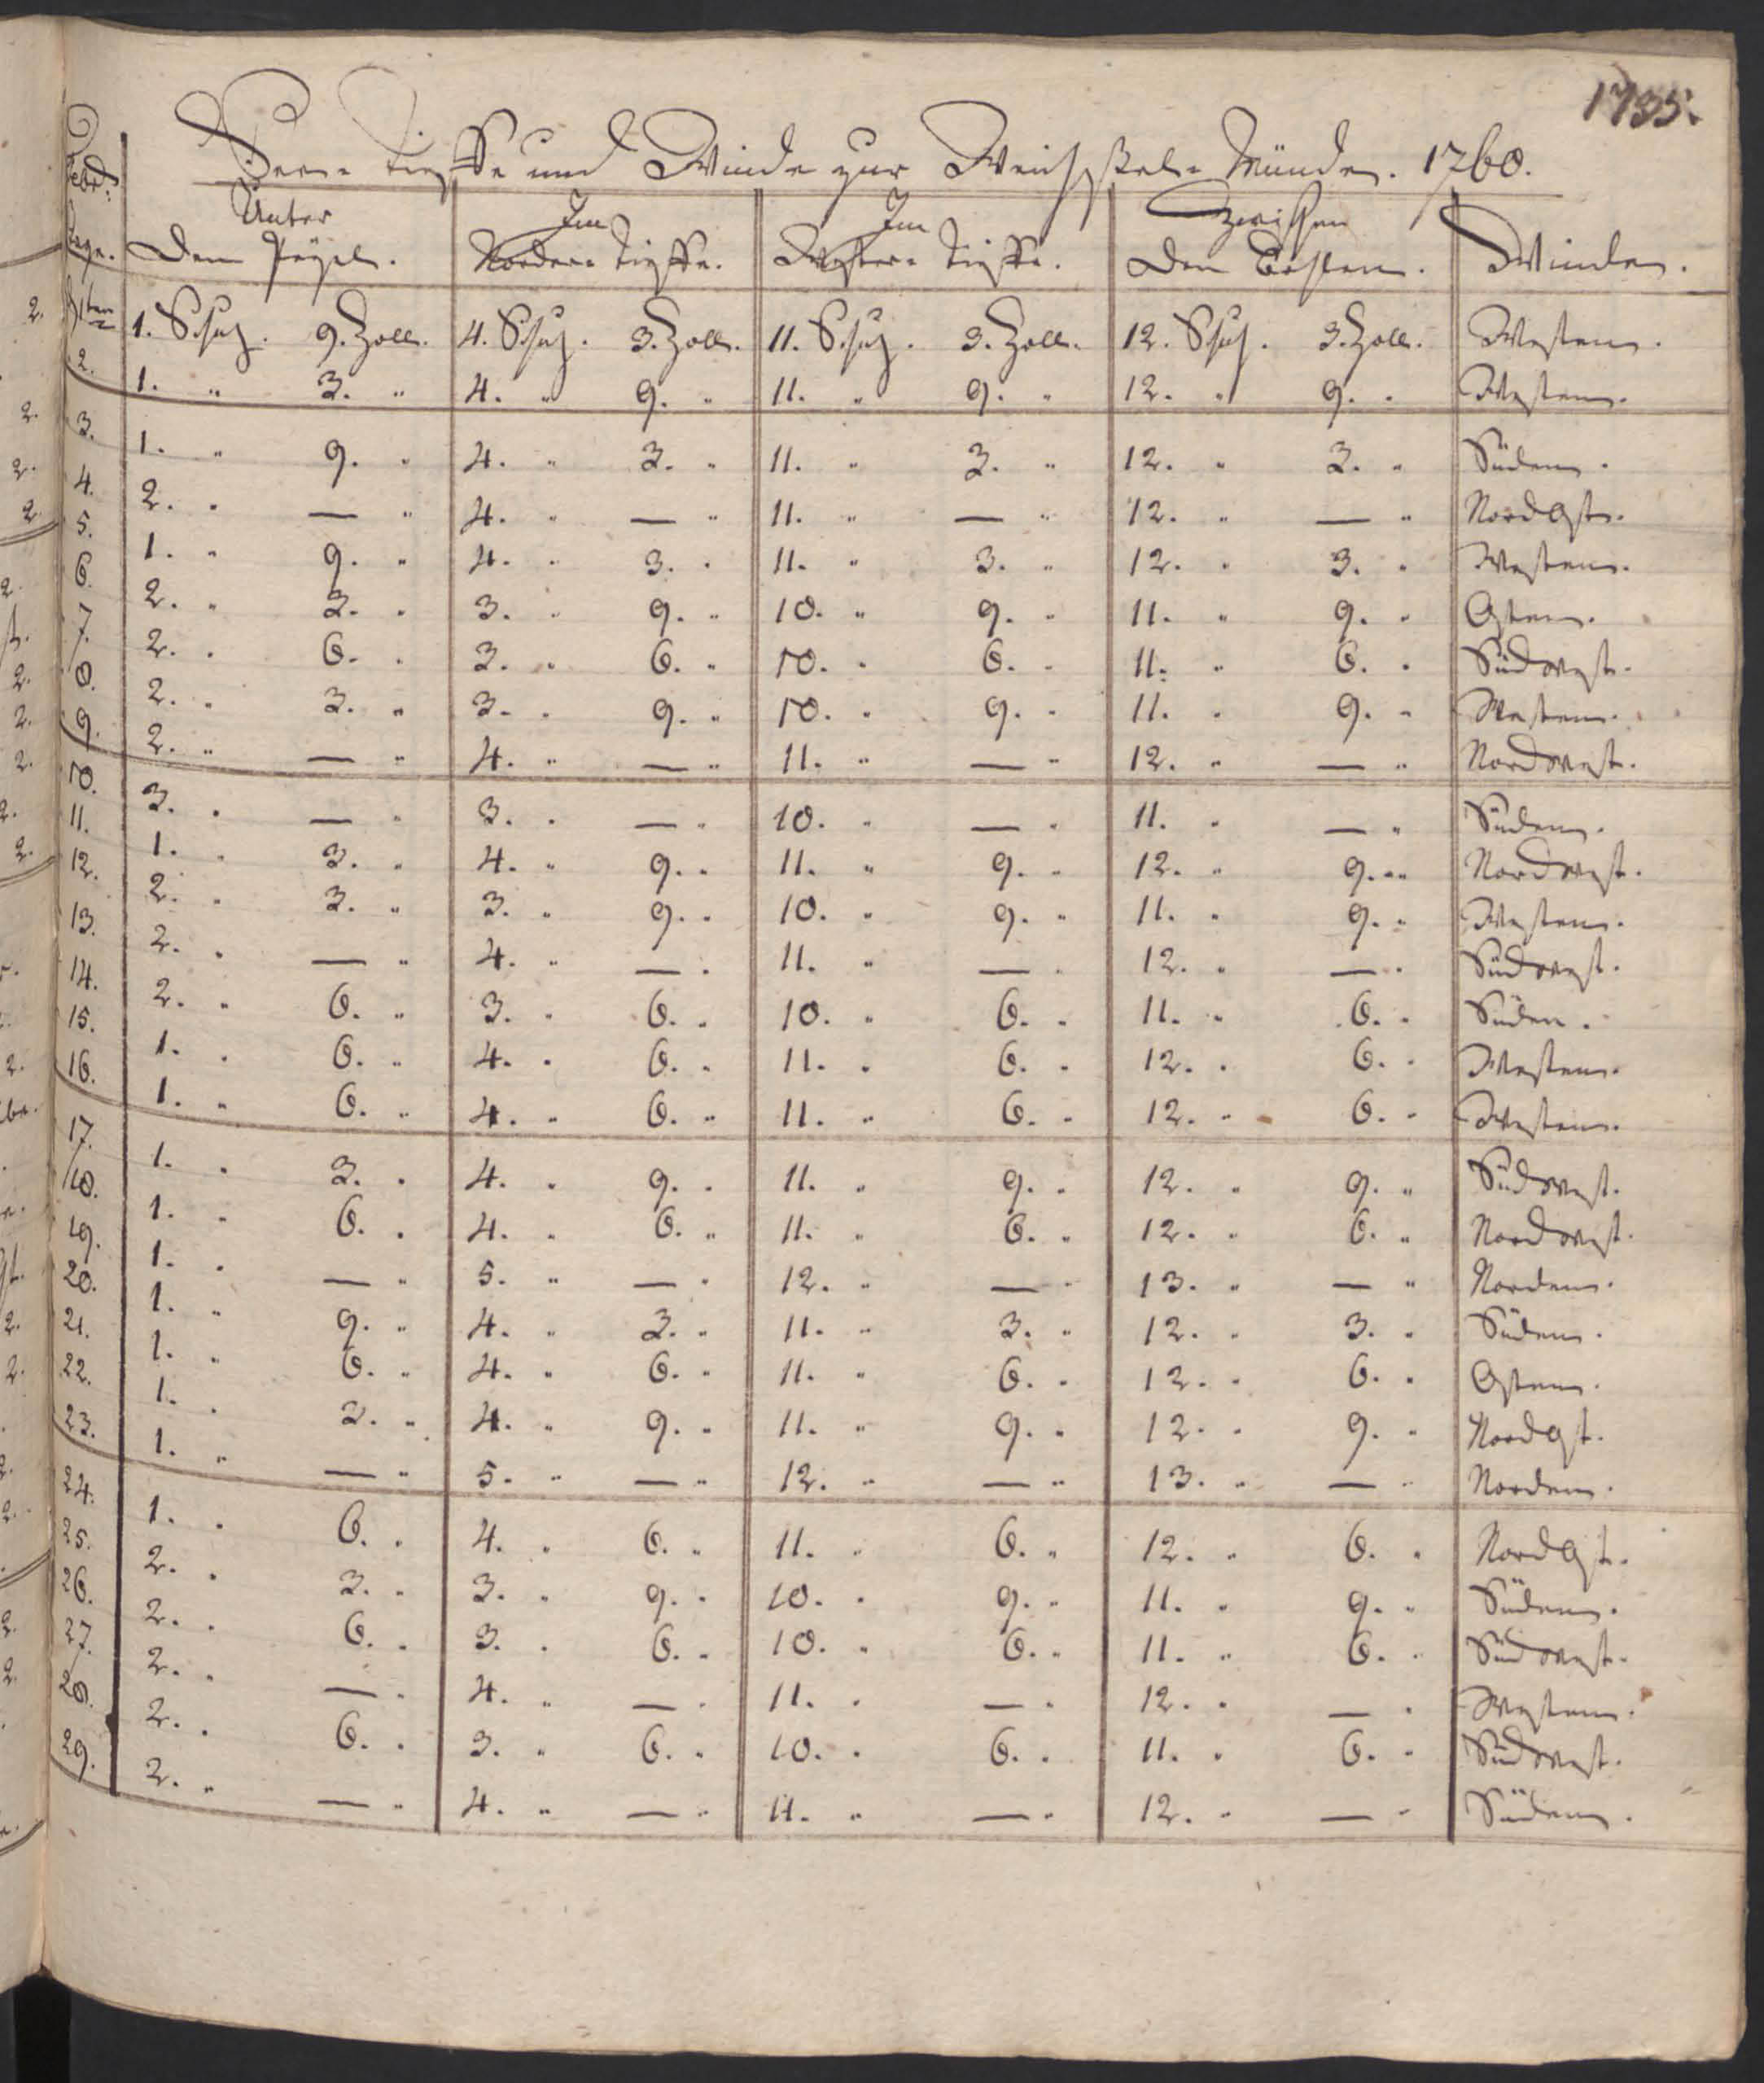 1735.
Seen- Tieffe und Winde zur Weichssel-Münde. 1760.
Febr: Tage. | Unter Dem Peÿel. | Im Norder- Tieffe. | Im Wester- Tieffe. | Zwischen Den | Winden.
1ten 1. Schuh. 9. Zoll. 4. Schuh. 3. Zoll. 11. Schuh. 3. Zoll. 12. Schuh. 3. Zoll. Westen.
2. 1. " 3. " 4. " 9. " 11. " 9. " 12. " 9. " Westen.
3. 1. " 9. " 4. " 3. " 11. " 3. " 12. " 3. " Süden.
4. 2. " — " 4. " — " 11. " — " 12. " — " NordOst.
5. 1. " 9. " 4. " 3. " 11. " 3. " 12. " 3. " Westen.
6. 2. " 3. " 3. " 9. " 10. " 9. " 11. " 9. " Osten.
7. 2. " 6. " 3. " 6. " 10. " 6. " 11. " 6. " Südwest.
8. 2. " 3. " 3. " 9. " 10. " 9. " 11. " 9. " Westen.
9. 2. " — " 4. " — " 11. " — " 12. " — " Nordwest.
10. 3. " — " 3. " — " 10. " — " 11. " — " Süden.
11. 1. " 3. " 4. " 9. " 11. " 9. " 12. " 9. " Nordwest.
12. 2. " 3. " 3. " 9. " 10. " 9. " 11. " 9. " Westen.
13. 2. " — " 4. " — " 11. " — " 12. " — " Südwest.
14. 2. " 6. " 3. " 6. " 10. " 6. " 11. " 6. " Süden.
15. 1. " 6. " 4. " 6. " 11. " 6. " 12. " 6. " Westen.
16. 1. " 6. " 4. " 6. " 11. " 6. " 12. " 6. " Westen.
17. 1. " 3. " 4. " 9. " 11. " 9. " 12. " 9. " Südwest.
18. 1. " 6. " 4. " 6. " 11. " 6. " 12. " 6. " Nordwest.
19. 1. " — " 5. " — " 12. " — " 13. " — " Norden.
20. 1. " 9. " 4. " 3. " 11. " 3. " 12. " 3. " Süden.
21. 1. " 6. " 4. " 6. " 11. " 6. " 12. " 6. " Osten.
22. 1. " 3. " 4. " 9. " 11. " 9. " 12. " 9. " NordOst.
23. 1. " — " 5. " — " 12. " — " 13. " — " Norden.
24. 1. " 6. " 4. " 6. " 11. " 6. " 12. " 6. " NordOst.
25. 2. " 3. " 3. " 9. " 10. " 9. " 11. " 9. " Süden.
26. 2. " 6. " 3. " 6. " 10. " 6. " 11. " 6. " Südwest.
27. 2. " — " 4. " — " 11. " — " 12. " — " Westen.
28. 2. " 6. " 3. " 6. " 10. " 6. " 11. " 6. " Südwest.
29. 2. " — " 4. " — " 11. " — " 12. " — " Süden.